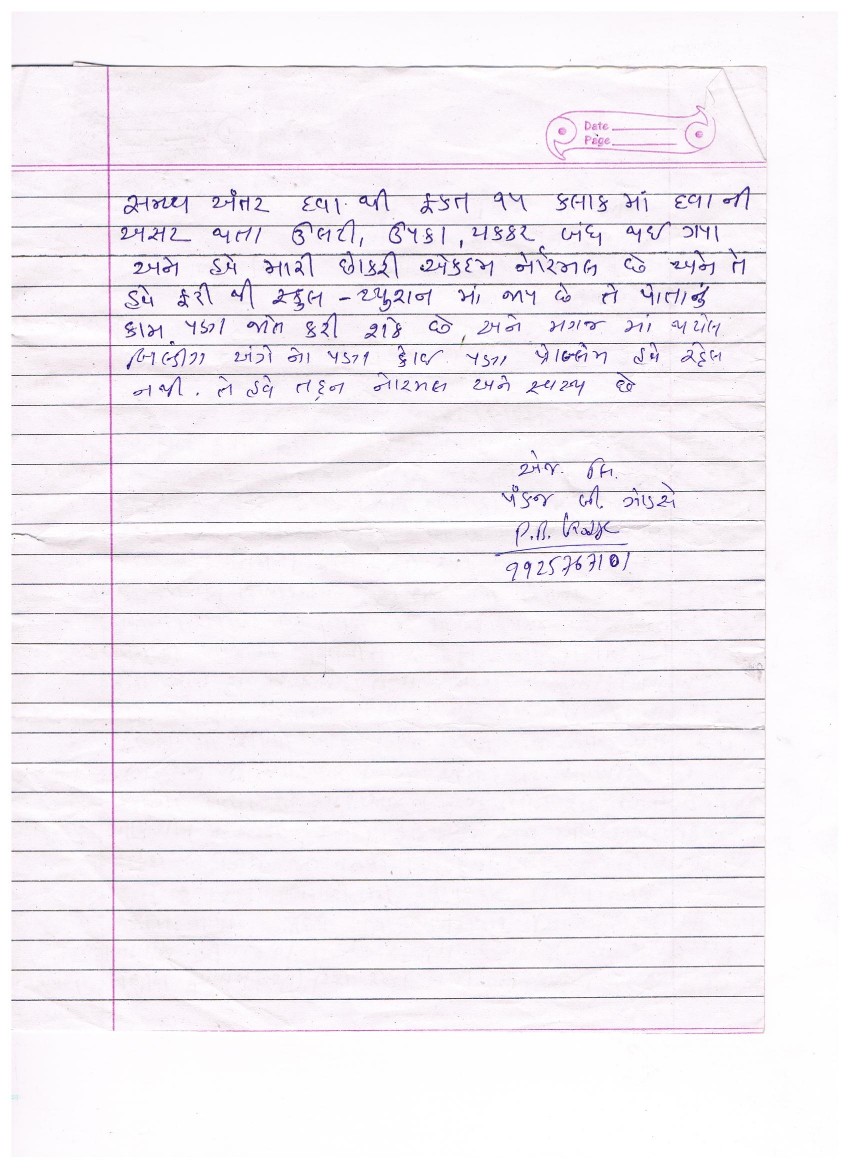 Date
Page
સમય અંતર દવા થી ફકત ૧૫ કલાક માં દવા ની
અસર થતા ઉલટી, ઉપકા, ચકકર બંધ થઈ ગયા
અને હવે મારી છોકરી એકદમ નોરમલ છે અને તે
હવે ફરી થી સ્કુલ - ટ્યુશન માં જાય છે તે પોતાનું
કામ પણ જાતે કરી શકે છે, અને મગજ માં થયેલ
બિલ્ડીંગ અંગે નો પણ કોઈ પણ પ્રોબ્લેમ હવે રહેલ
નથી. તે હવે તદ્દન નોરમલ અને સ્વસ્થ છે
એજ. લિ.
પંકજ બી. ગોડસે
P.B.
9925767101